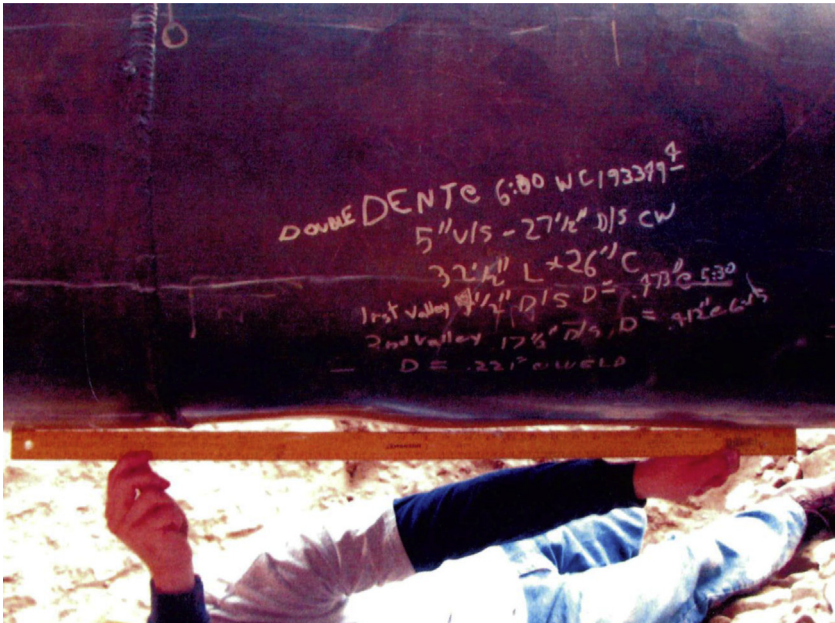 DOUBLE DENT @ 6:00 WC 193379
5" U/S - 27 1/2" D/S CW
32 1/2" L x 26" C
1rst valley 1/2" D/S D= .473" @ 5:30
2nd valley 17 1/2" D/S, D= .412" @
D = .221" @ WELD